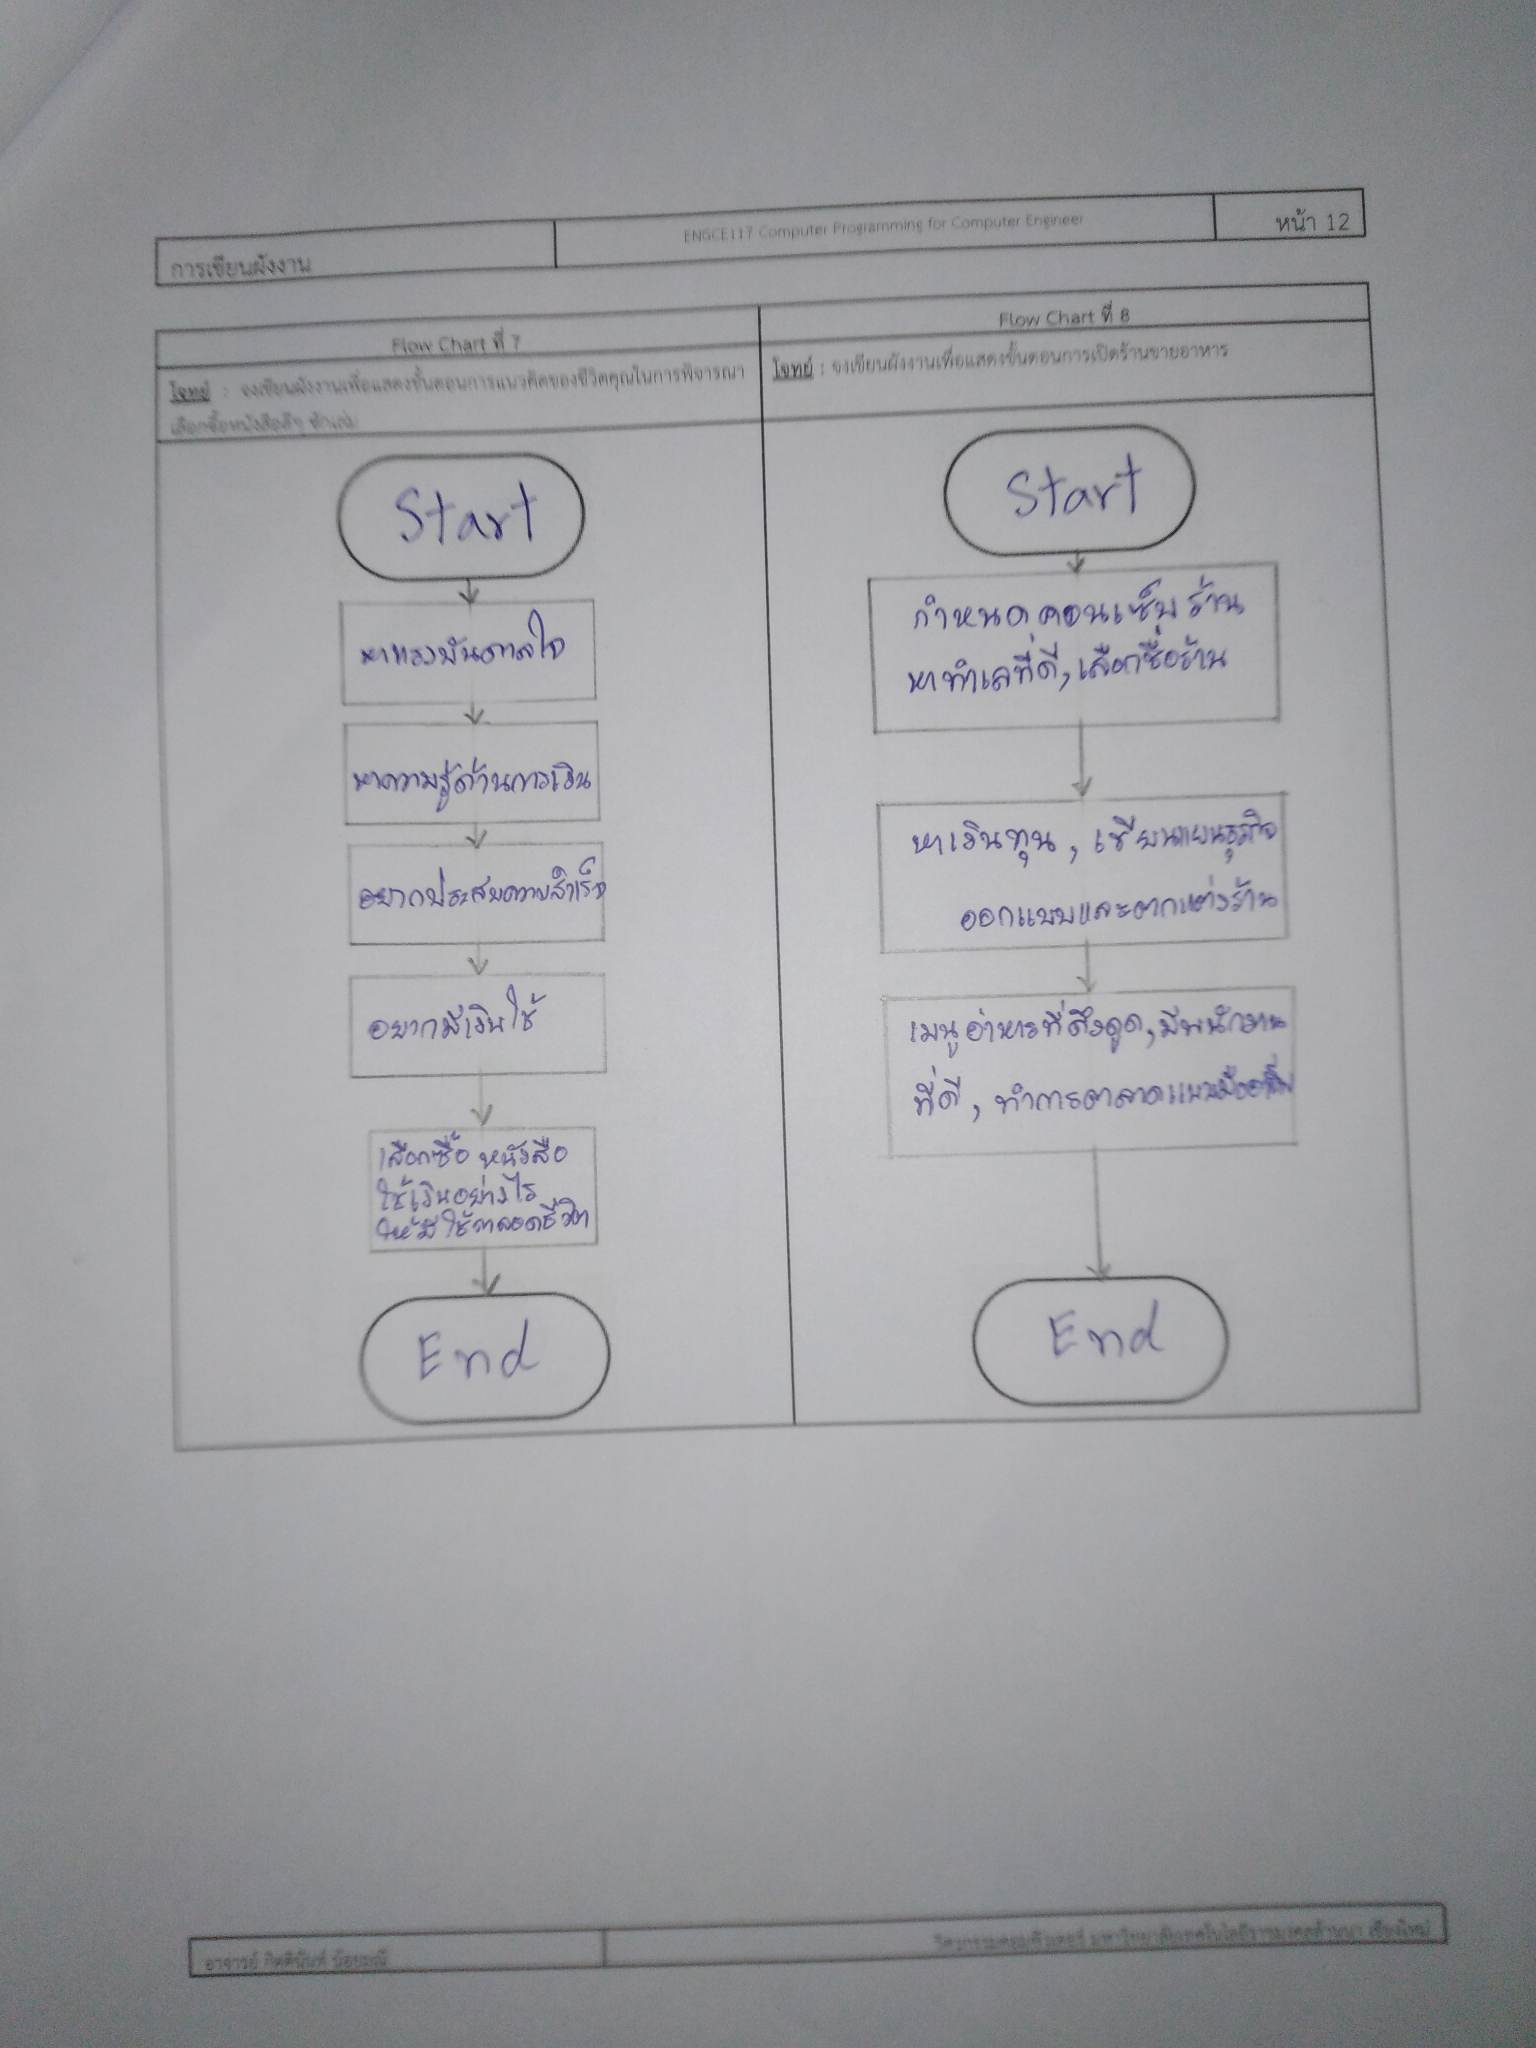 การเขียนผังงาน
ENGCE117 Computer Programming for Computer Engineer
หน้า 12
Flow Chart ที่ 7
โจทย์ : จงเขียนผังงานเพื่อแสดงขั้นตอนการแนวคิดของชีวิตคุณในการพิจารณา
เลือกซื้อหนังสือดีๆ ซักเล่ม
Start
หาแรงบันดาลใจ
หาความรู้ด้านการเงิน
อยากประสบความสำเร็จ
อยากมีเงินใช้
เลือกซื้อ หนังสือ
ใช้เงินอย่างไร
ให้มีใช้ตลอดชีวิต
End
Flow Chart ที่ 8
โจทย์ : จงเขียนผังงานเพื่อแสดงขั้นตอนการเปิดร้านขายอาหาร
Start
กำหนดคอนเซ็บร้าน
หาทำเลที่ดี, เลือกชื่อร้าน
หาเงินทุน, เขียนแผนธุรกิจ
ออกแบบและตกแต่งร้าน
เมนูอาหารที่ดึงดูด, มีพนักงาน
ที่ดี, ทำการตลาดแบบ
End
อาจารย์ กิตตินันท์ น้อยมณี
วิศวกรรมคอมพิวเตอร์ มหาวิทยาลัยเทคโนโลยีราชมงคลล้านนา เชียงใหม่